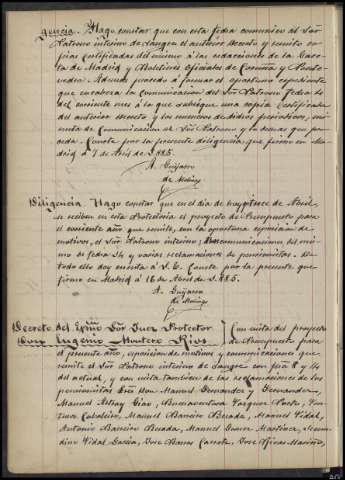 gencia. Hago constar que con esta fecha comunico al Sor
Patrono interino de Sangre el anterior Decreto y remito co-
pias certificadas del mismo á las redacciones de la Gace-
ta de Madrid y Boletines oficiales de Coruña y Ponte-
vedra. Ademas procedo á formar el oportuno expediente
que encabeza la comunicacion del Sor Patrono fecha 1º
del corriente mes á la que subsigue una copia certificada
del anterior Decreto y los numeros de dichos periodicos, mi-
nuta de comunicacion al Sor Patrono y lo demas que pro-
ceda. Conste por la presente diligencia que firmo en Ma-
drid á 7 de Abril de 1885.
A. Guijarro
de
Diligencia. Hago constar que en el dia de hoy de Abril
se reciben en esta Protectoria el proyecto de Presupuesto para
el corriente año que remite, con la oportuna esposicion de
motivos, el Sor Patrono interino; comunicaciones del mis-
mo de fecha 14 y varias reclamaciones de pensionistas. De
todo ello doy cuenta á S. E. Conste por la presente que
firmo en Madrid á 16 de Abril de 1885.
A. Guijarro
de
Decreto del Exmo Sor Juez Protector Con vista del proyecto
Don Eugenio Montero Rios. de Presupuesto para
el presente año, esposicion de motivos y comunicaciones que
remite el Sor Patrono interino de Sangre con fha 8 y 14
del actual, y con vista tambien de las reclamaciones de los
pensionistas Don Manuel Fernandez y Fernandez,
Manuel Astray Buenaventura Vazquez
Caballeiro, Manuel Barreiro Manuel Vidal,
Antonio Barreiro Manuel Gomez Martinez, Secun-
dino Vidal Garcia, Jose Jose Rivas Mariño,